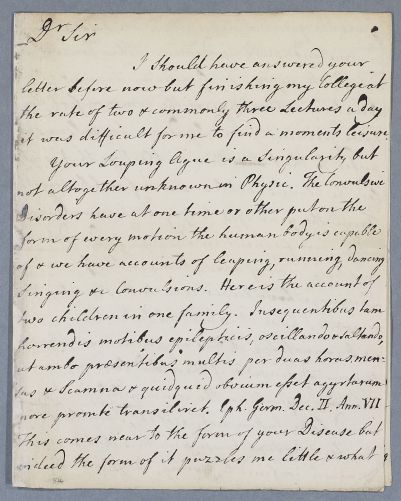 Dr Sir
I should have answered your
letter before now but finishing my College at
the rate of two & commonly three Lectures a day
it was difficult for me to find a moments leisure
Your Louping Ague is a Singularity but
not altogether unknown in Physic. The Convulsive
Disorders have at one time or other put on the
form of every motion the human body is capable
of & we have accounts of leaping, running, dancing
Singing &c Convulsions. Here is the account of
two children in one family. Insequentibus tam
horrendis motibus epilepticis, oscillando & saltando,
ut ambo præsentibus multis per duas horas men-
sas & Scamna & quidquid obvium esset agyrtarum
more promte transiliret. Eph. Germ. Dec. II. Ann. VII
This comes near to the form of your Disease but
indeed the form of it puzzles me little & what